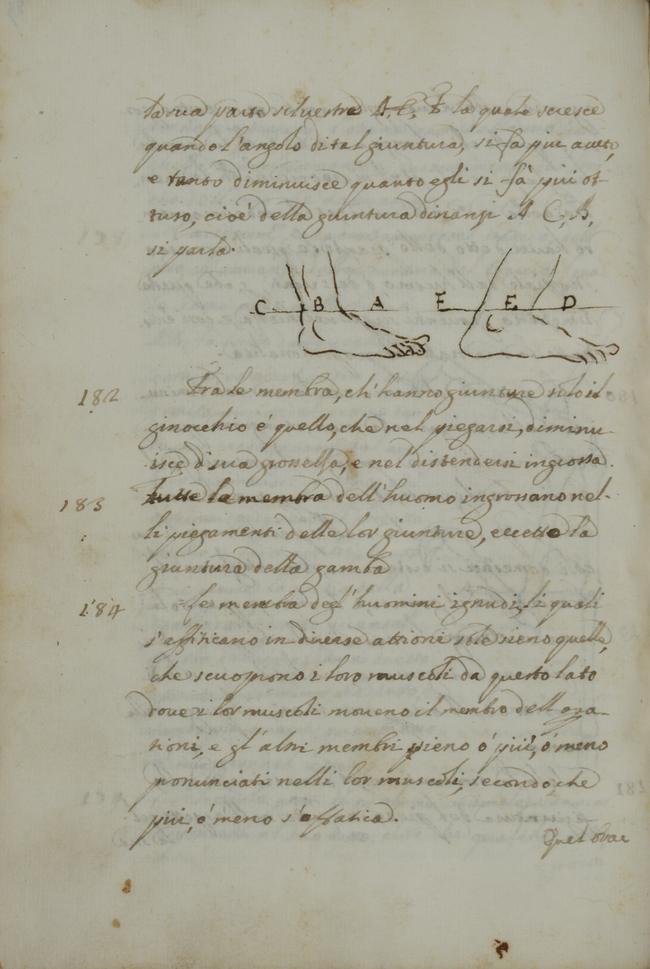 la sua parte silvestre A, C, B la quale scresce
quando l'angolo di tal giuntura, si fà piu acuto,
e tanto diminuisce quanto egli si fà più ot-
tuso, cioè della giuntura dinanzi A C, B,
si parla.
C B A E E D
182 Fra le membra, ch' hanno giunture solo il
ginocchio é quello, che nel piegarsi, diminu-
isce di sua grossezza, e nel distendersi ingrossa.
183 Tutte le membra dell' huomo ingrossano nel-
li piegamenti delle lor giunture, eccetto la
giuntura della gamba
184 Le membra degl' huomini ignudi, li quali
s'affaticano in diverse attioni sole sieno quelle,
che scuoprono i loro muscoli da questo lato
dove i lor muscoli moveno il membro dell' ope-
rationi, e gl' altri membri sieno ó più, ó meno
pronunciati nelli lor muscoli, secondo che
più, ó meno s'affatica.